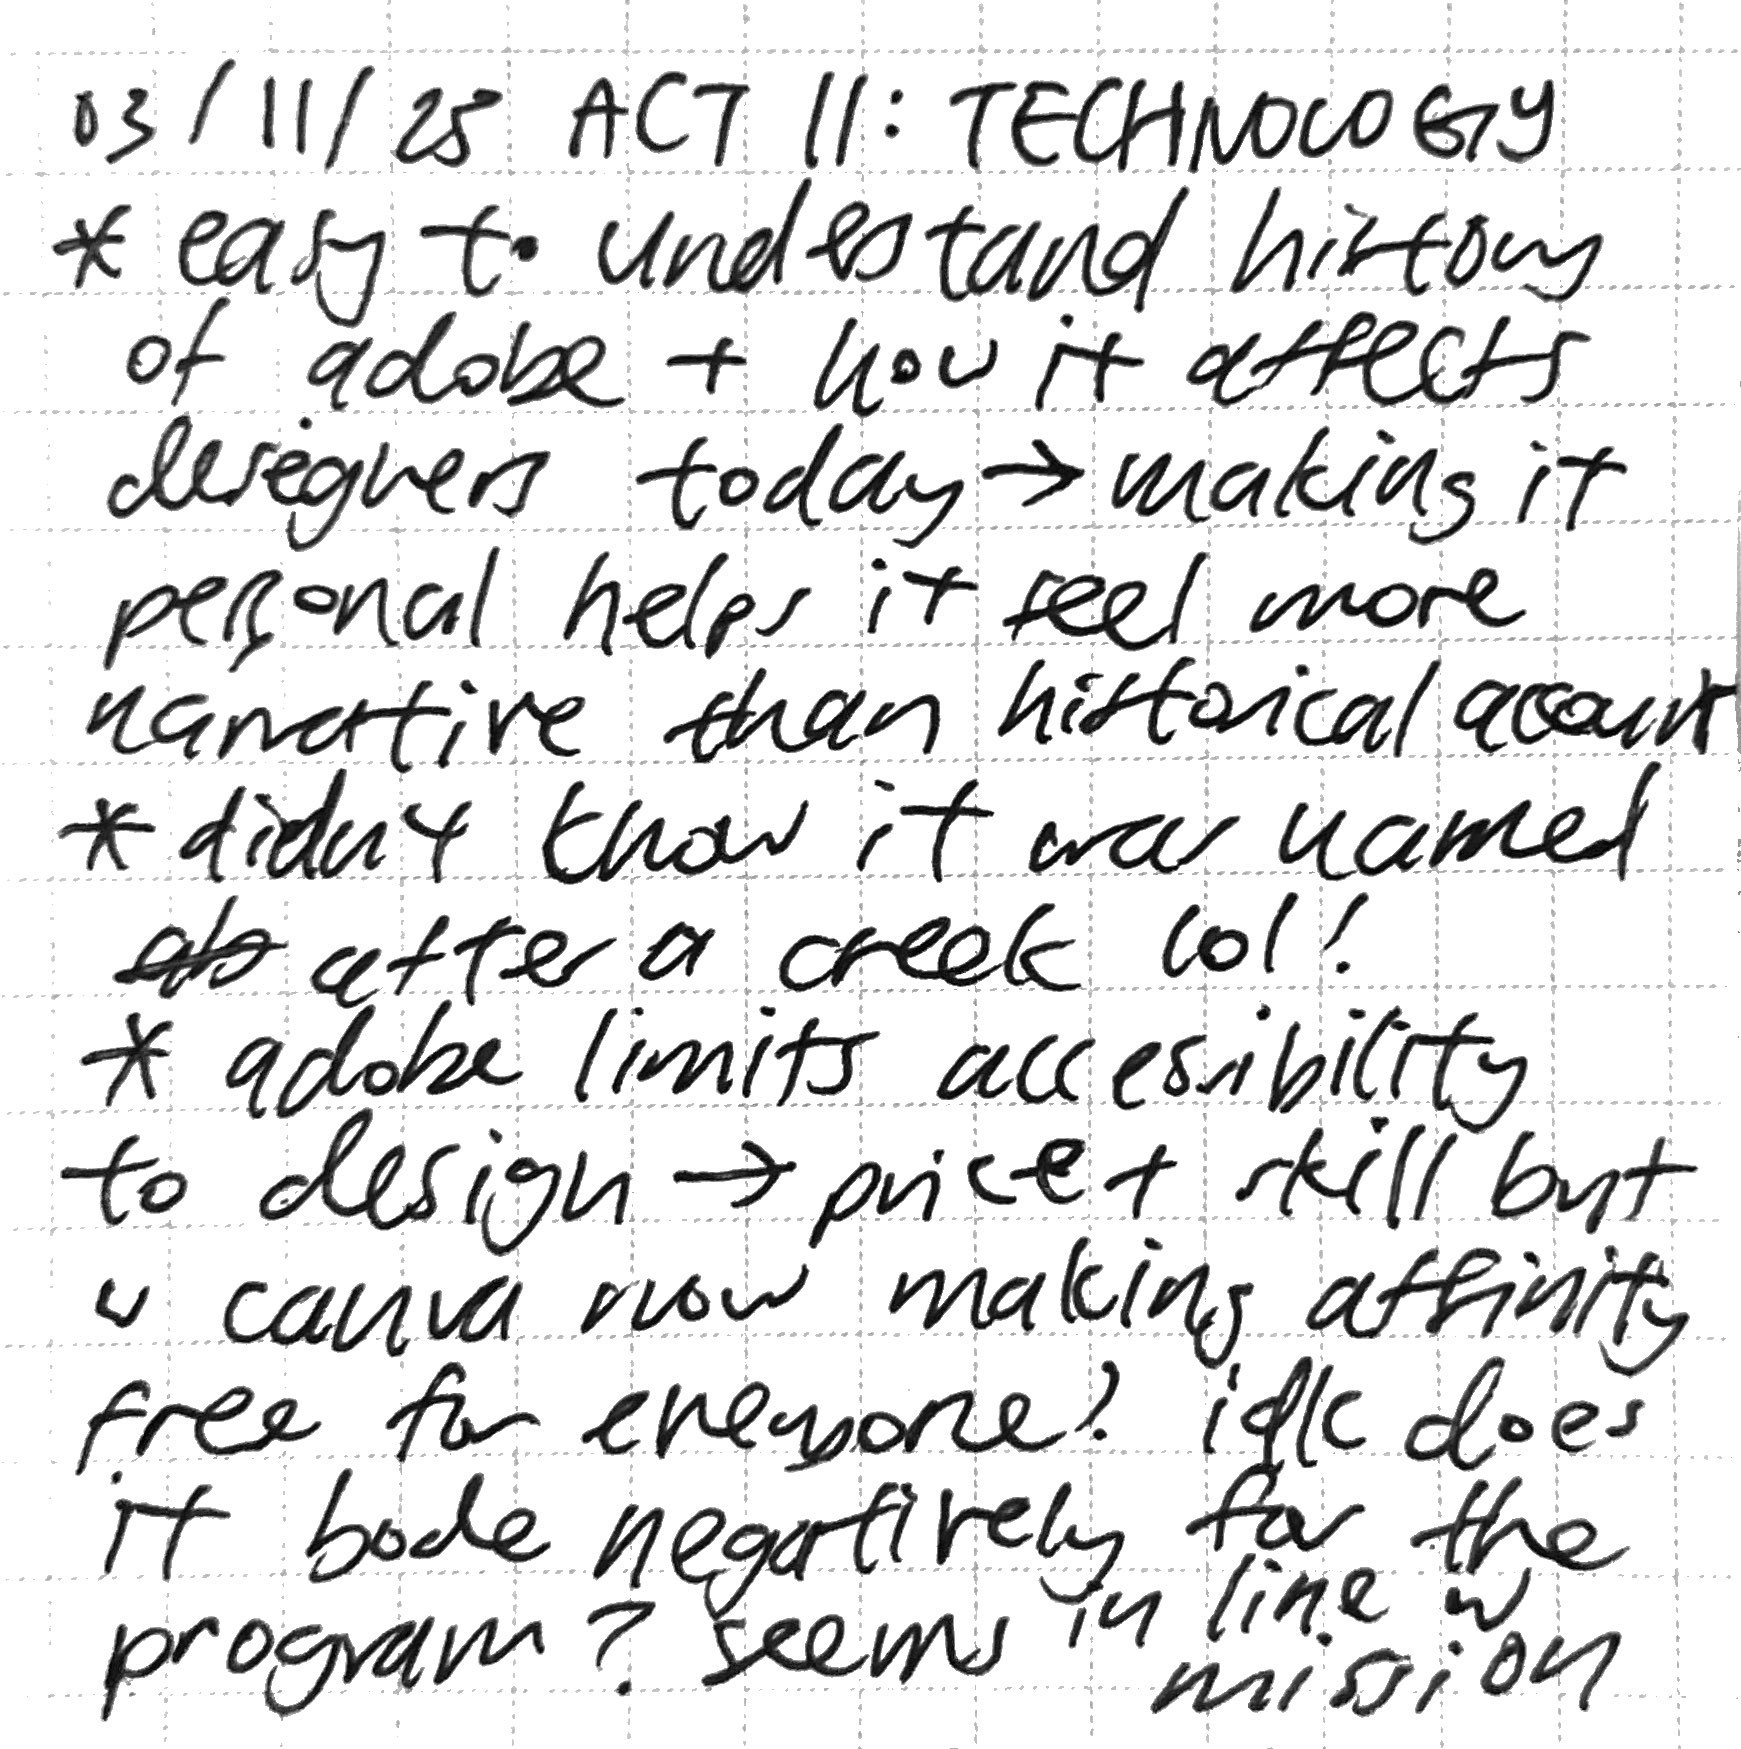 03/11/25 ACT II: TECHNOLOGY
* easy to understand history
of adobe + how it affects
designers today → making it
personal helps it feel more
narrative than historical account
* didn't know it was named
ab after a creek lol!
* adobe limits accesibility
to design → price + skill but
w canva now making affinity
free for everyone? idk does
it bode negatively for the
program? seems in line w
mission